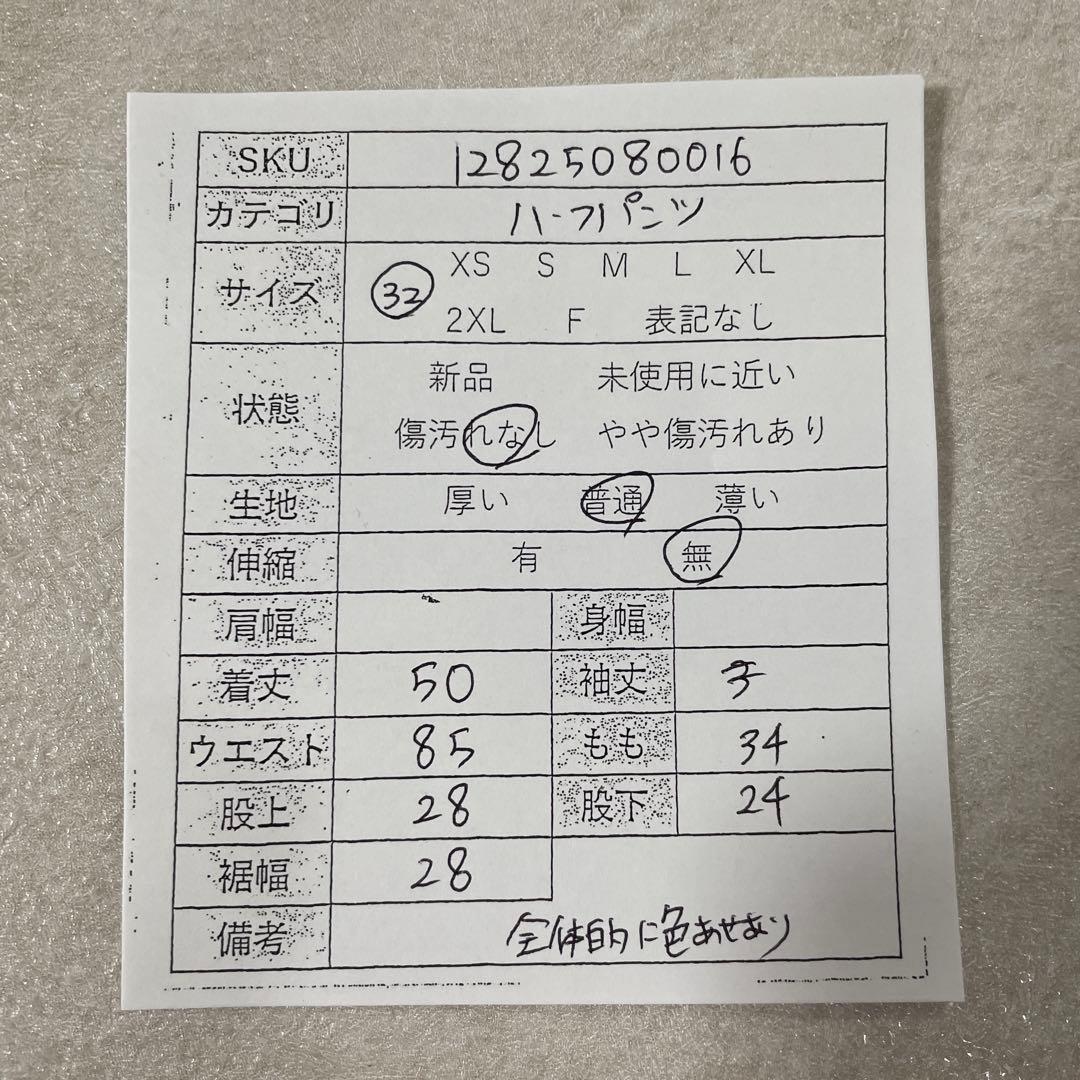 SKU 12825080016
カテゴリ ハーフパンツ
サイズ 32 XS S M L XL
2XL F 表記なし
状態 新品 未使用に近い
傷汚れなし やや傷汚れあり
生地 厚い 普通 薄い
伸縮 有 無
肩幅 身幅
着丈 50 袖丈
ウエスト 85 もも 34
股上 28 股下 24
裾幅 28
備考 全体的に色あせあり